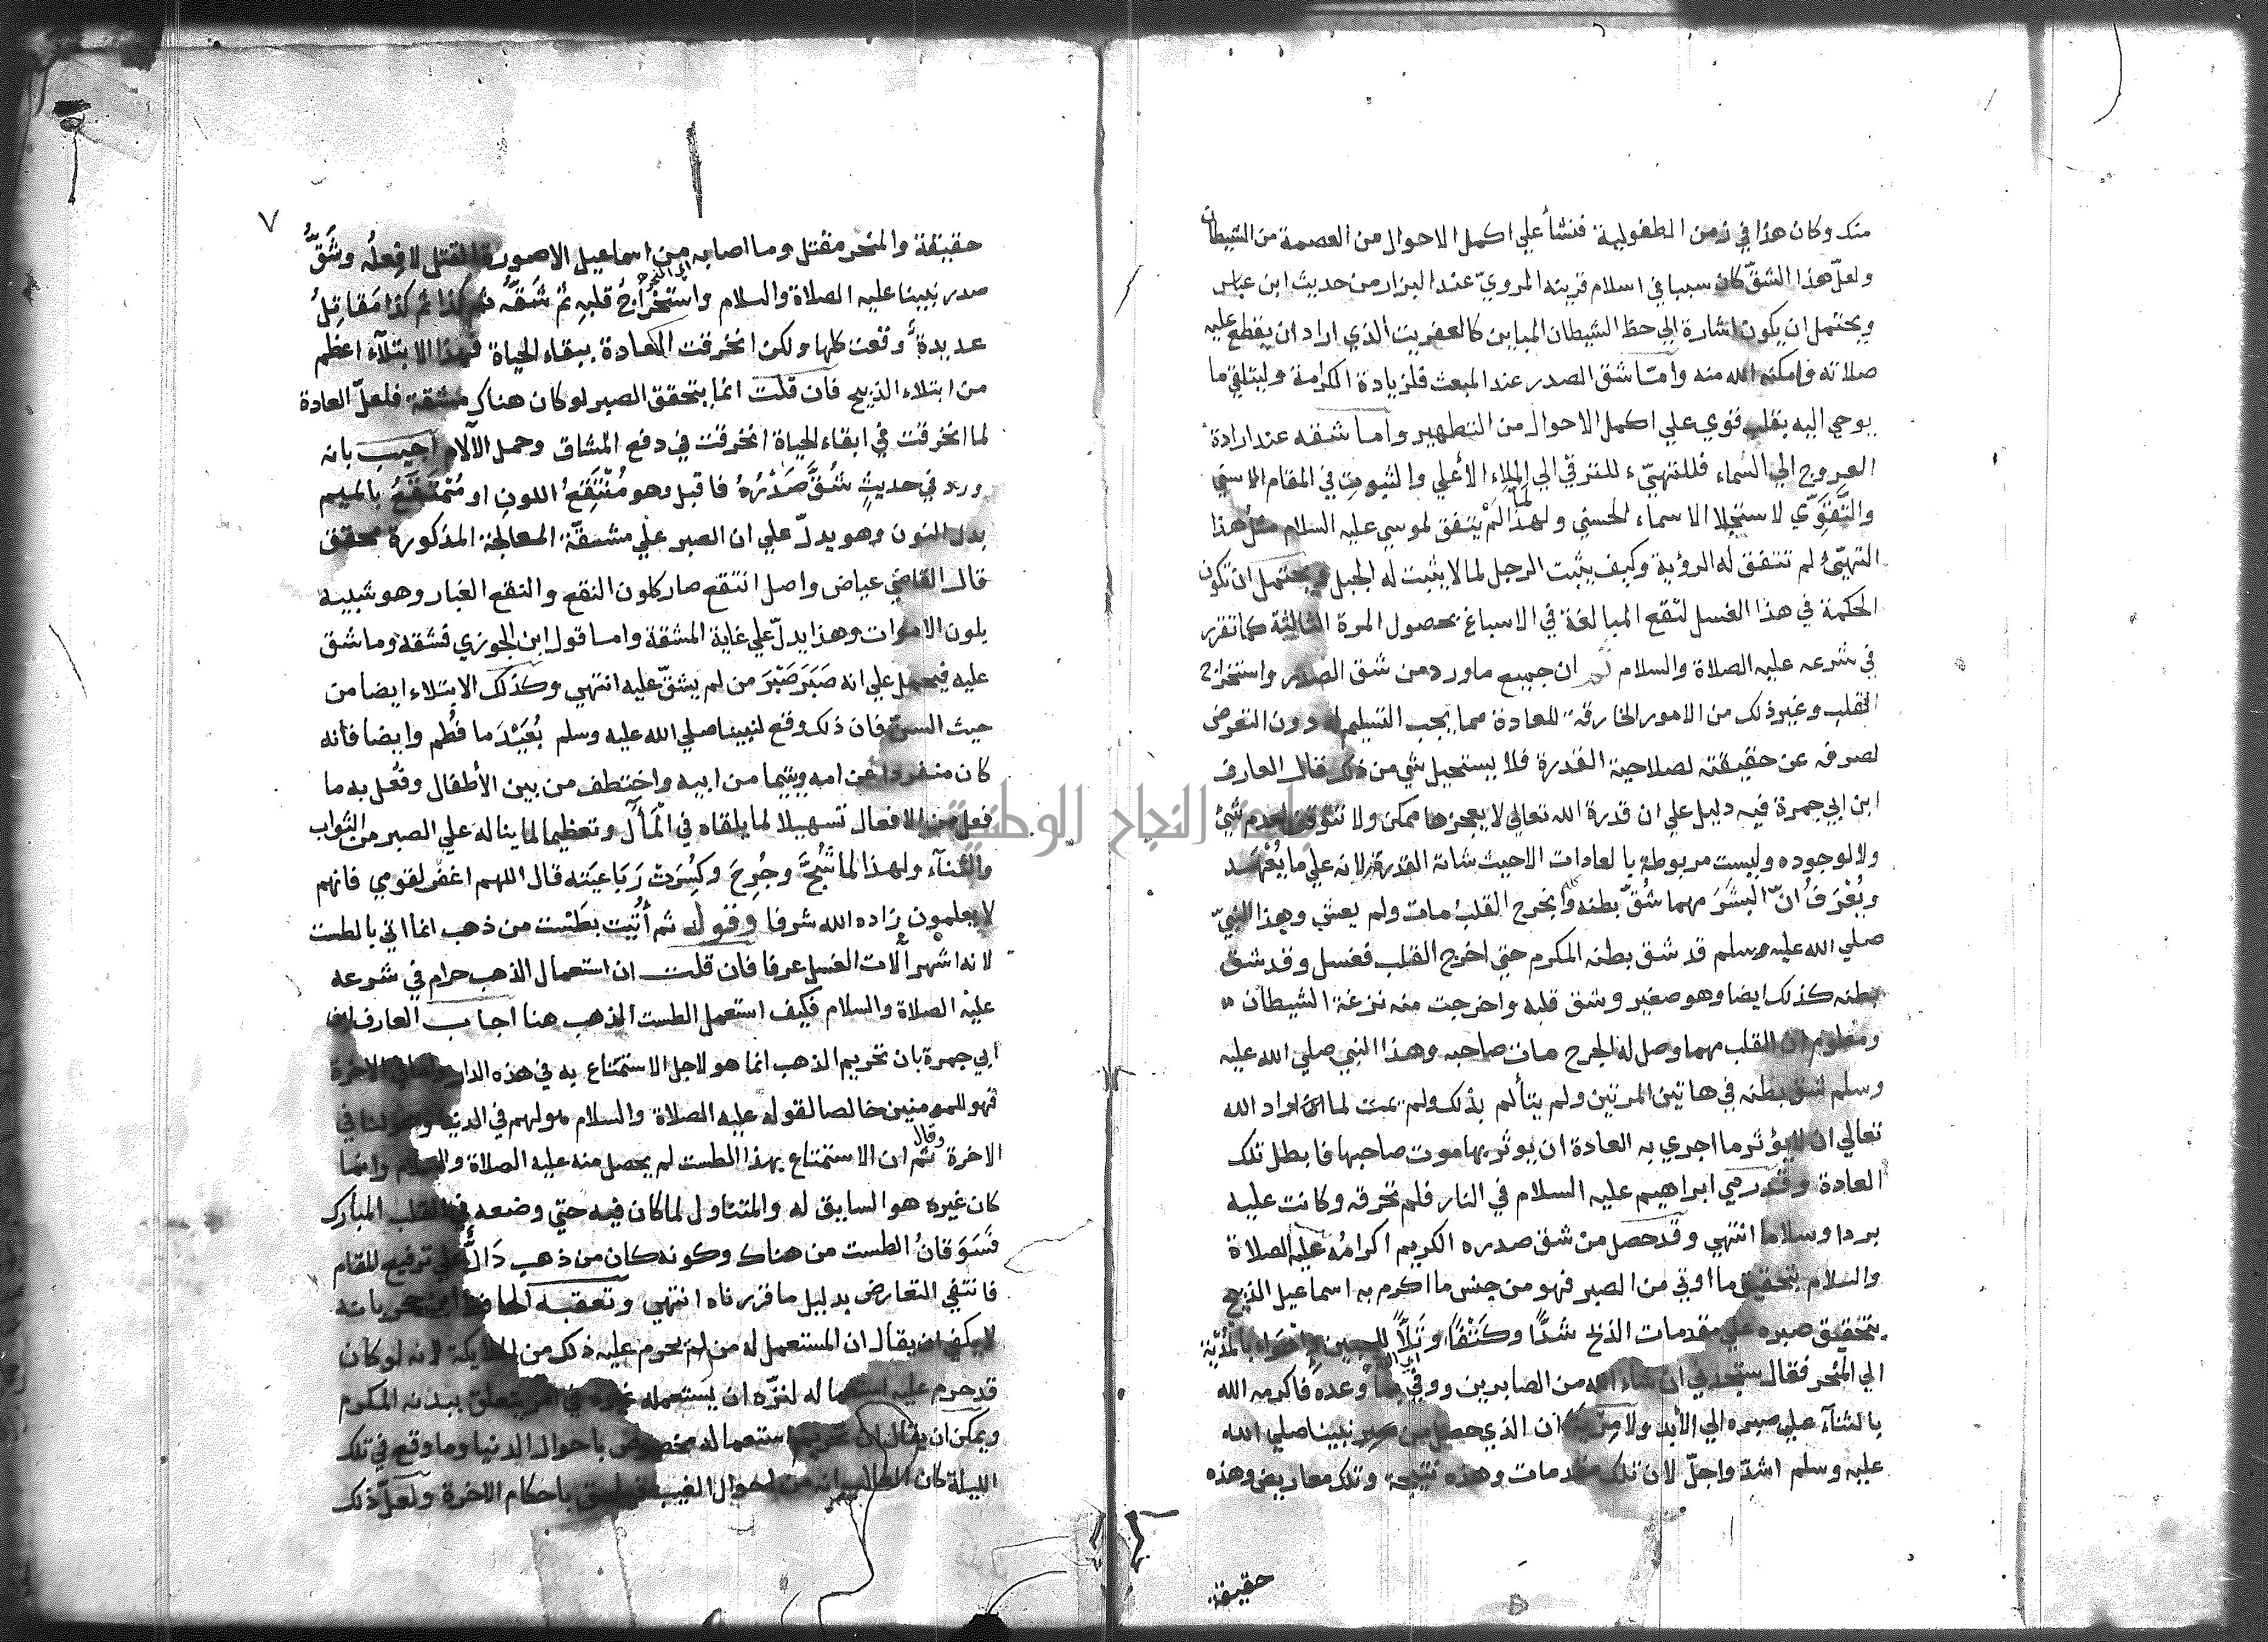 منك وكان هذا في زمن الطفولية فنشأ علي اكمل الاحوال من العصمة من الشيطان
ولعلّ هذا الشقّ كان سببا في اسلام قرينه المرويّ عند البزار من حديث ابن عباس
ويحتمل ان يكون اشارة الي حظ الشيطان المباين كالعفريت الذي اراد ان يقطع عليه
صلاته وامكنه الله منه وامّا شق الصدر عند المبعث فلزيادة الكرامة وليتلقي ما
يوحي اليه بقلب قوي علي اكمل الاحوال من التطهير واما شقه عند ارادة
العروج الي السماء فللتهيّء للترقي الي الملاء الأعلي والثبوت في المقام الاسني
والتَّقَوِّي لاستجلا الاسماء الحسني ولهذا لمّا لَمْ يتفق لموسي عليه السلام مثل هذا
التهيّئ لم تتفق له الرؤية وكيف يثبت الرجل لما لا يثبت له الجبل ويحتمل ان تكون
الحكمة في هذا الغسل لتقع المبالغة في الاسباغ بحصول المرة الثالثة كما تقرر
في شرعه عليه الصلاة والسلام ثم ان جميع ما ورد من شق الصدر واستخراج
القلب وغير ذلك من الامور الخارقة للعادة مما يجب التسليم له دون التعرض
لصرفه عن حقيقته لصلاحية القدرة فلا يستحيل شي من ذلك قال العارف
ابن ابي جمرة فيه دليل علي ان قدرة الله تعالي لا يعجزها ممكن ولا تتوقف لعدم شيْ
ولا لوجوده وليست مربوطة بالعادات الا حيث شاءته القدرة لانه علي ما يُعْهَد
ويُعْرَفُ انّ البشَرَ مهما شُقّ بطنه كله وانجرح القلب مات ولم يعش وهذا النبيّ
صلي الله عليه وسلم قد شق بطنه المكرم حتي اخرج القلب فغسل وقد شق
بطنه كذلك ايضا وهو صغير وشق قلبه واخرجت منه نزغة الشيطان
ومعلوم ان القلب مهما وصل له الجرح مات صاحبه وهذا النبي صلي الله عليه
وسلم شق بطنه في هاتين المرتين ولم يتألم بذلك ولم يمت لما ان اراد الله
تعالي ان لا يؤثر ما اجري به العادة ان يوثر بها موت صاحبها فابطل تلك
العادة وقد رمي ابراهيم عليه السلام في النار فلم تحرقه وكانت عليه
بردا وسلاما انتهي وقد حصل من شق صدره الكريم اكرامُه عليه الصلاة
والسلام بتحقيق ما اوتي من الصبر فهو من جنس ما اكرم به اسماعيل الذبيح
بتحقيق صبره علي مقدمات الذبح شدًّا وكَتْفًا وتَلاًّ للجبين واهواء بالمُدْيَة
الي المنحر فقال ستجدني ان شاء الله من الصابرين ووفي بما وعده فاكرمه الله
بالثنآء علي صبره الي الأبد ولا مرية ان الذي حصل من صبر نبينا صلي الله
عليه وسلم اشدّ واجلّ لان تلك مقدمات وهذه نتيجة وتلك معاريض وهذه
حقيقة
٧
حقيقة والمنحر مقتل وما اصابه من اسماعيل الا صورة القتل لا فِعلُه وشَقُّ
صدر نبينا عليه الصلاة والسلام واستخراجُ قلبِهِ ثم شَقُّه ثم كذا ثم كذا مَقاتِلُ
عديدةٌ وقعت كلها ولكن انخرقت العادة ببقاء الحياة فهذا الابتلآء اعظم
من ابتلاء الذبيح فان قلت انما يتحقق الصبر لو كان هناك مشقة فلعلّ العادة
لما انخرقت في ابقاء الحياة انخرقت في دفع المشاق وحمل الآلام اجيب بانه
ورد في حديث شُقَّ صَدْرُهُ فاقبل وهو مُنْتَقِعُ اللون او مُمْتَقَعُ بالميم
بدل النون وهو يدلّ علي ان الصبر علي مشقّة المعالجة المذكورة محقق
قال القاضي عياض واصل انتقع صار كلون النقع والنقع الغبار وهو شبيه
بلون الاموات وهذا يدلّ علي غاية المشقة واما قول ابن الجوزي فشقه وما شق
عليه فيحمل علي انه صَبَرَ صَبْرَ من لم يشقّ عليه انتهي وكذلك الابتلاء ايضا من
حيث السنّ فان ذلك وقع لنبينا صلي الله عليه وسلم بُعَيْدَ ما فُطِم وايضا فانه
كان منفردا عن امه ويتيما من ابيه واختطف من بين الأطفال وفُعل به ما
فعل من الافعال تسهيلا لما يلقاه في الْمَآل وتعظيما لما يناله علي الصبر من الثواب
والثنآء ولهذا لما شُجَّ وجُرِحَ وكُسِرَتْ رَبَاعيَته قال اللهم اغفر لقومي فانهم
لا يعلمون زاده الله شرفا وقوله ثم أُتيت بطَسْت من ذهب انما اتي بالطست
لانه اشهر آلات الغسل عرفا فان قلت ان استعمال الذهب حرام في شرعه
عليه الصلاة والسلام فكيف استعمل الطست الذهب هنا اجاب العارف ابن
ابي جمرة بان تحريم الذهب انما هو لاجل الاستمتاع به في هذه الدار واما في الاخرة
فهو للمومنين خالصا لقوله عليه الصلاة والسلام هو لهم في الدنيا وهو لنا في
الاخرة وقال ثم ان الاستمتاع بهذا الطست لم يحصل منه عليه الصلاة والسلام وانما
كان غيره هو السابق له والمتناول لما كان فيه حتي وضعه في القلب المبارك
فَسَوَقانُ الطست من هناك وكونه كان من ذهب دَالٌّ علي ترفيع المقام
فانتفي التعارض بدليل ما قررناه انتهي وتعقبه الحافظ ابن حجر بانه
لا يكفي ان يقال ان المستعمل له من لم يحرم عليه ذلك من الملايكة لانه لو كان
قد حرم عليه استعماله لنزّه ان يستعمله غيره في امر يتعلق ببدنه المكرم
ويمكن ان يقال ان تحريم استعماله مخصوص باحوال الدنيا وما وقع في تلك
الليلة كان الغالب انه من احوال الغيب فيلحق باحكام الاخرة ولعلّ ذلك
جامعة النجاح الوطنية